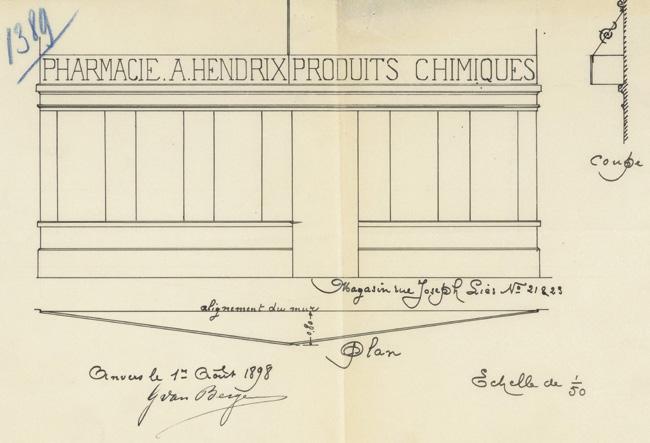 1389
PHARMACIE. A. HENDRIX PRODUITS CHIMIQUES
Coupe
Magasin rue Joseph Liès Nos 21 & 23
alignement du mur
0.80
Plan
Anvers le 1er Août 1898
Echelle de 1/50
Yvan